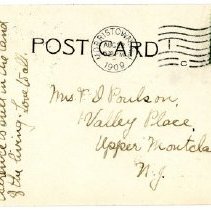 POST CARD
MORRISTOWN
1909
Mrs F. D Poulson,
Valley Place,
Upper Montclai
N.J.
is still in the land
of the living. Love to all